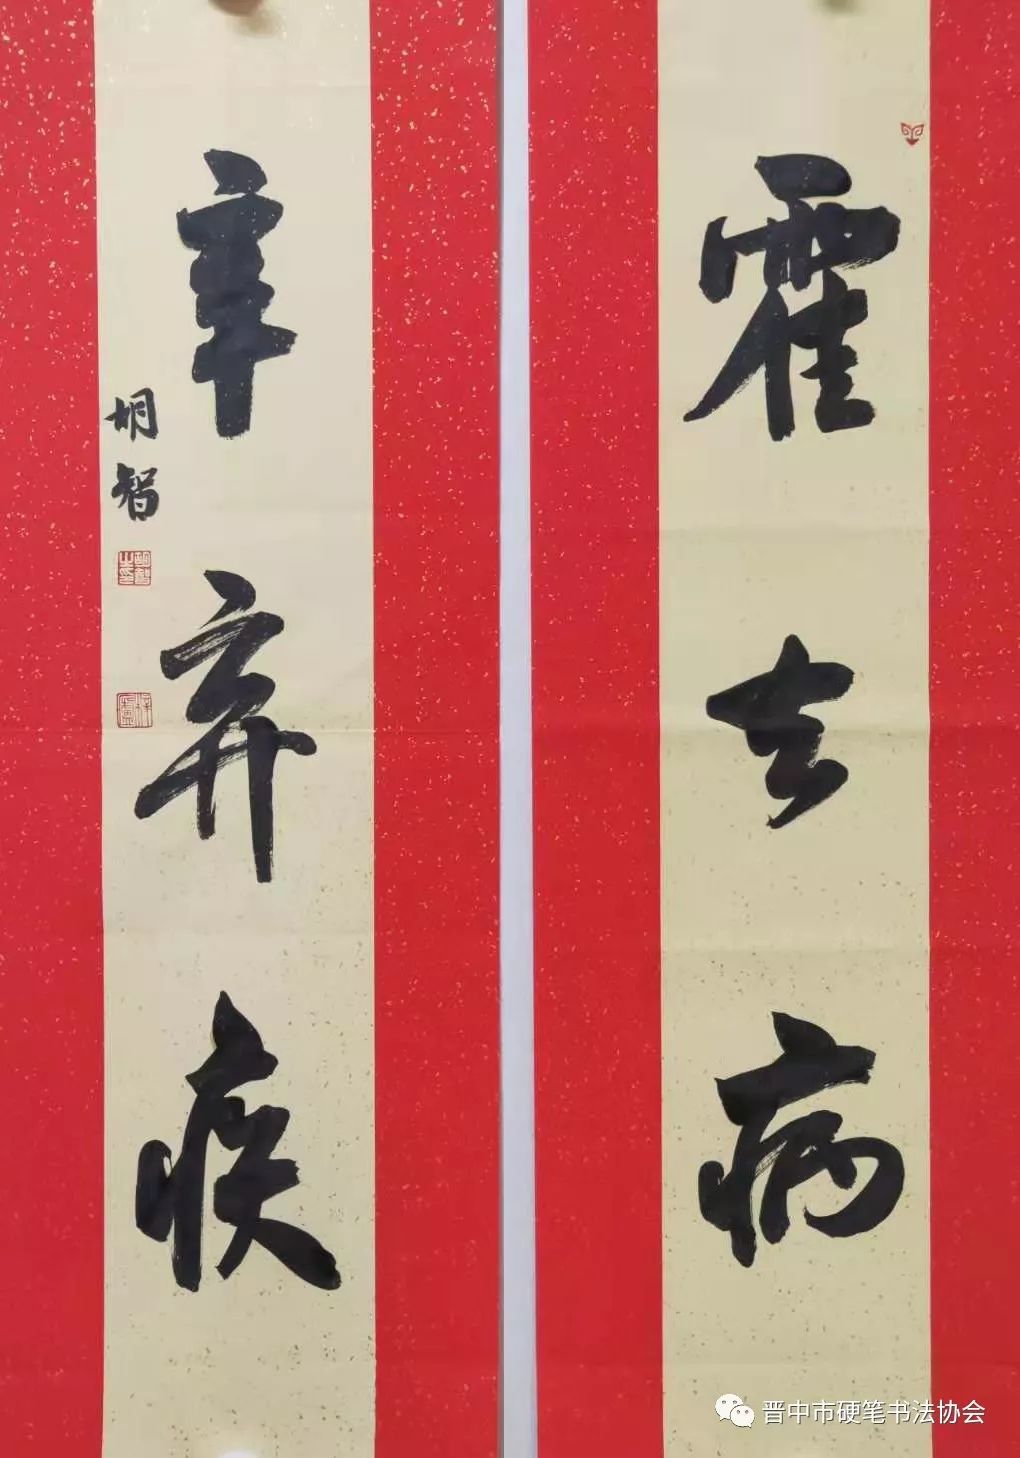 霍去病
辛弃疾
胡智
晋中市硬笔书法协会